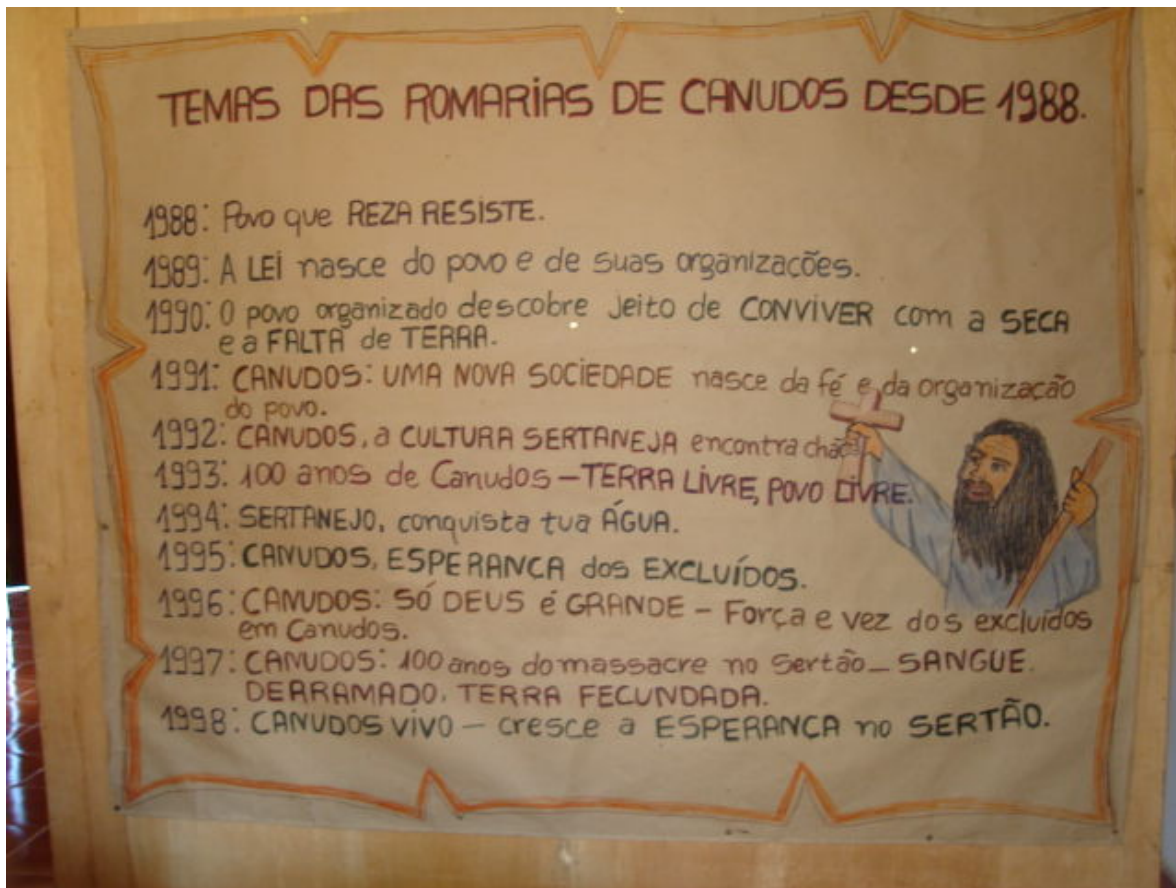 TEMAS DAS ROMARIAS DE CANUDOS DESDE 1988.
1988: Povo que REZA RESISTE.
1989: A LEI nasce do povo e de suas organizações.
1990: O povo organizado descobre jeito de CONVIVER com a SECA
e a FALTA de TERRA.
1991: CANUDOS: UMA NOVA SOCIEDADE nasce da fé e da organização
do povo.
1992: CANUDOS, a CULTURA SERTANEJA encontra chão.
1993: 100 anos de Canudos – TERRA LIVRE, POVO LIVRE.
1994: SERTANEJO, conquista tua ÁGUA.
1995: CANUDOS, ESPERANCA dos EXCLUÍDOS.
1996: CANUDOS: SÓ DEUS é GRANDE – Força e vez dos excluídos
em Canudos.
1997: CANUDOS: 100 anos do massacre no Sertão – SANGUE
DERRAMADO, TERRA FECUNDADA.
1998: CANUDOS VIVO – cresce a ESPERANÇA no SERTÃO.